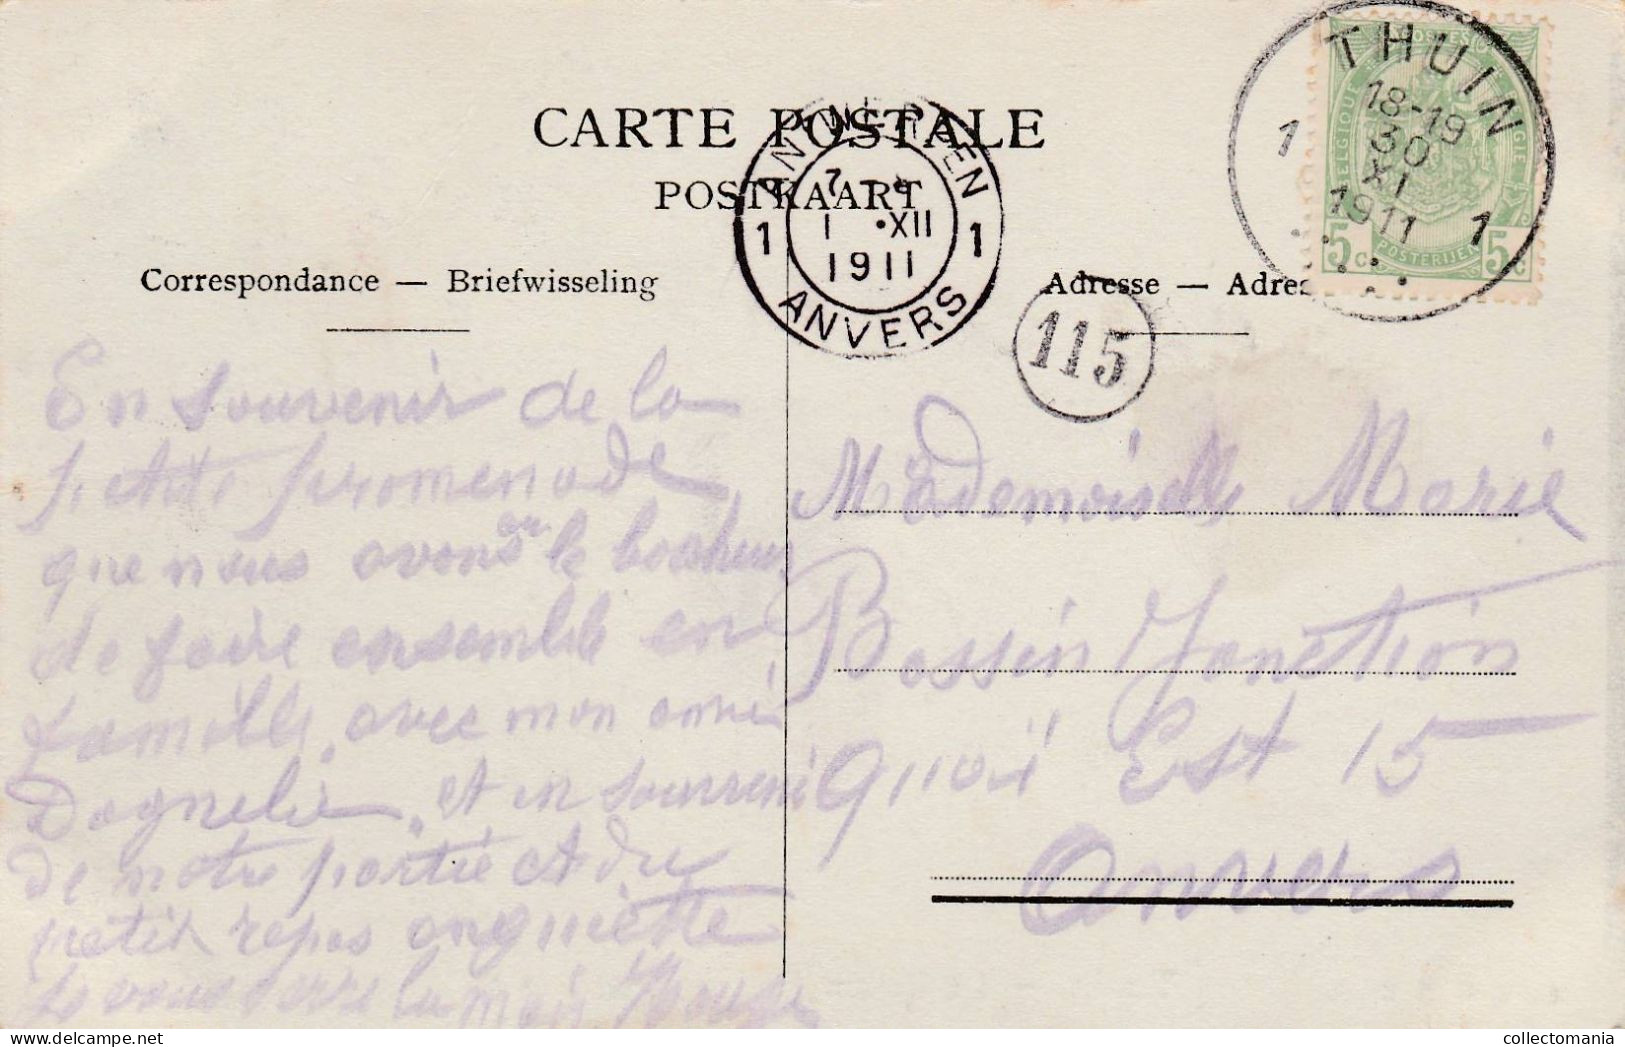 CARTE POSTALE
POSTKAART
Correspondance — Briefwisseling
Adresse — Adres
ANTWERPEN
7
1 I •XII 1
1911
ANVERS
THUIN
18-19
1 30
XI
1911 1
BELGIQUE
5c POSTERIJEN 5c
115
En souvenir de la
petite promenade
que nous avons eu le bonheur
de faire ensemble en
famille, avec mon ami
Dognelie, et en souvenir
de notre partie et du
petit repos
je vous serre la main
Mademoiselle Marie
Bassin Jonction
quai Est 15
Anvers
collectomania.com